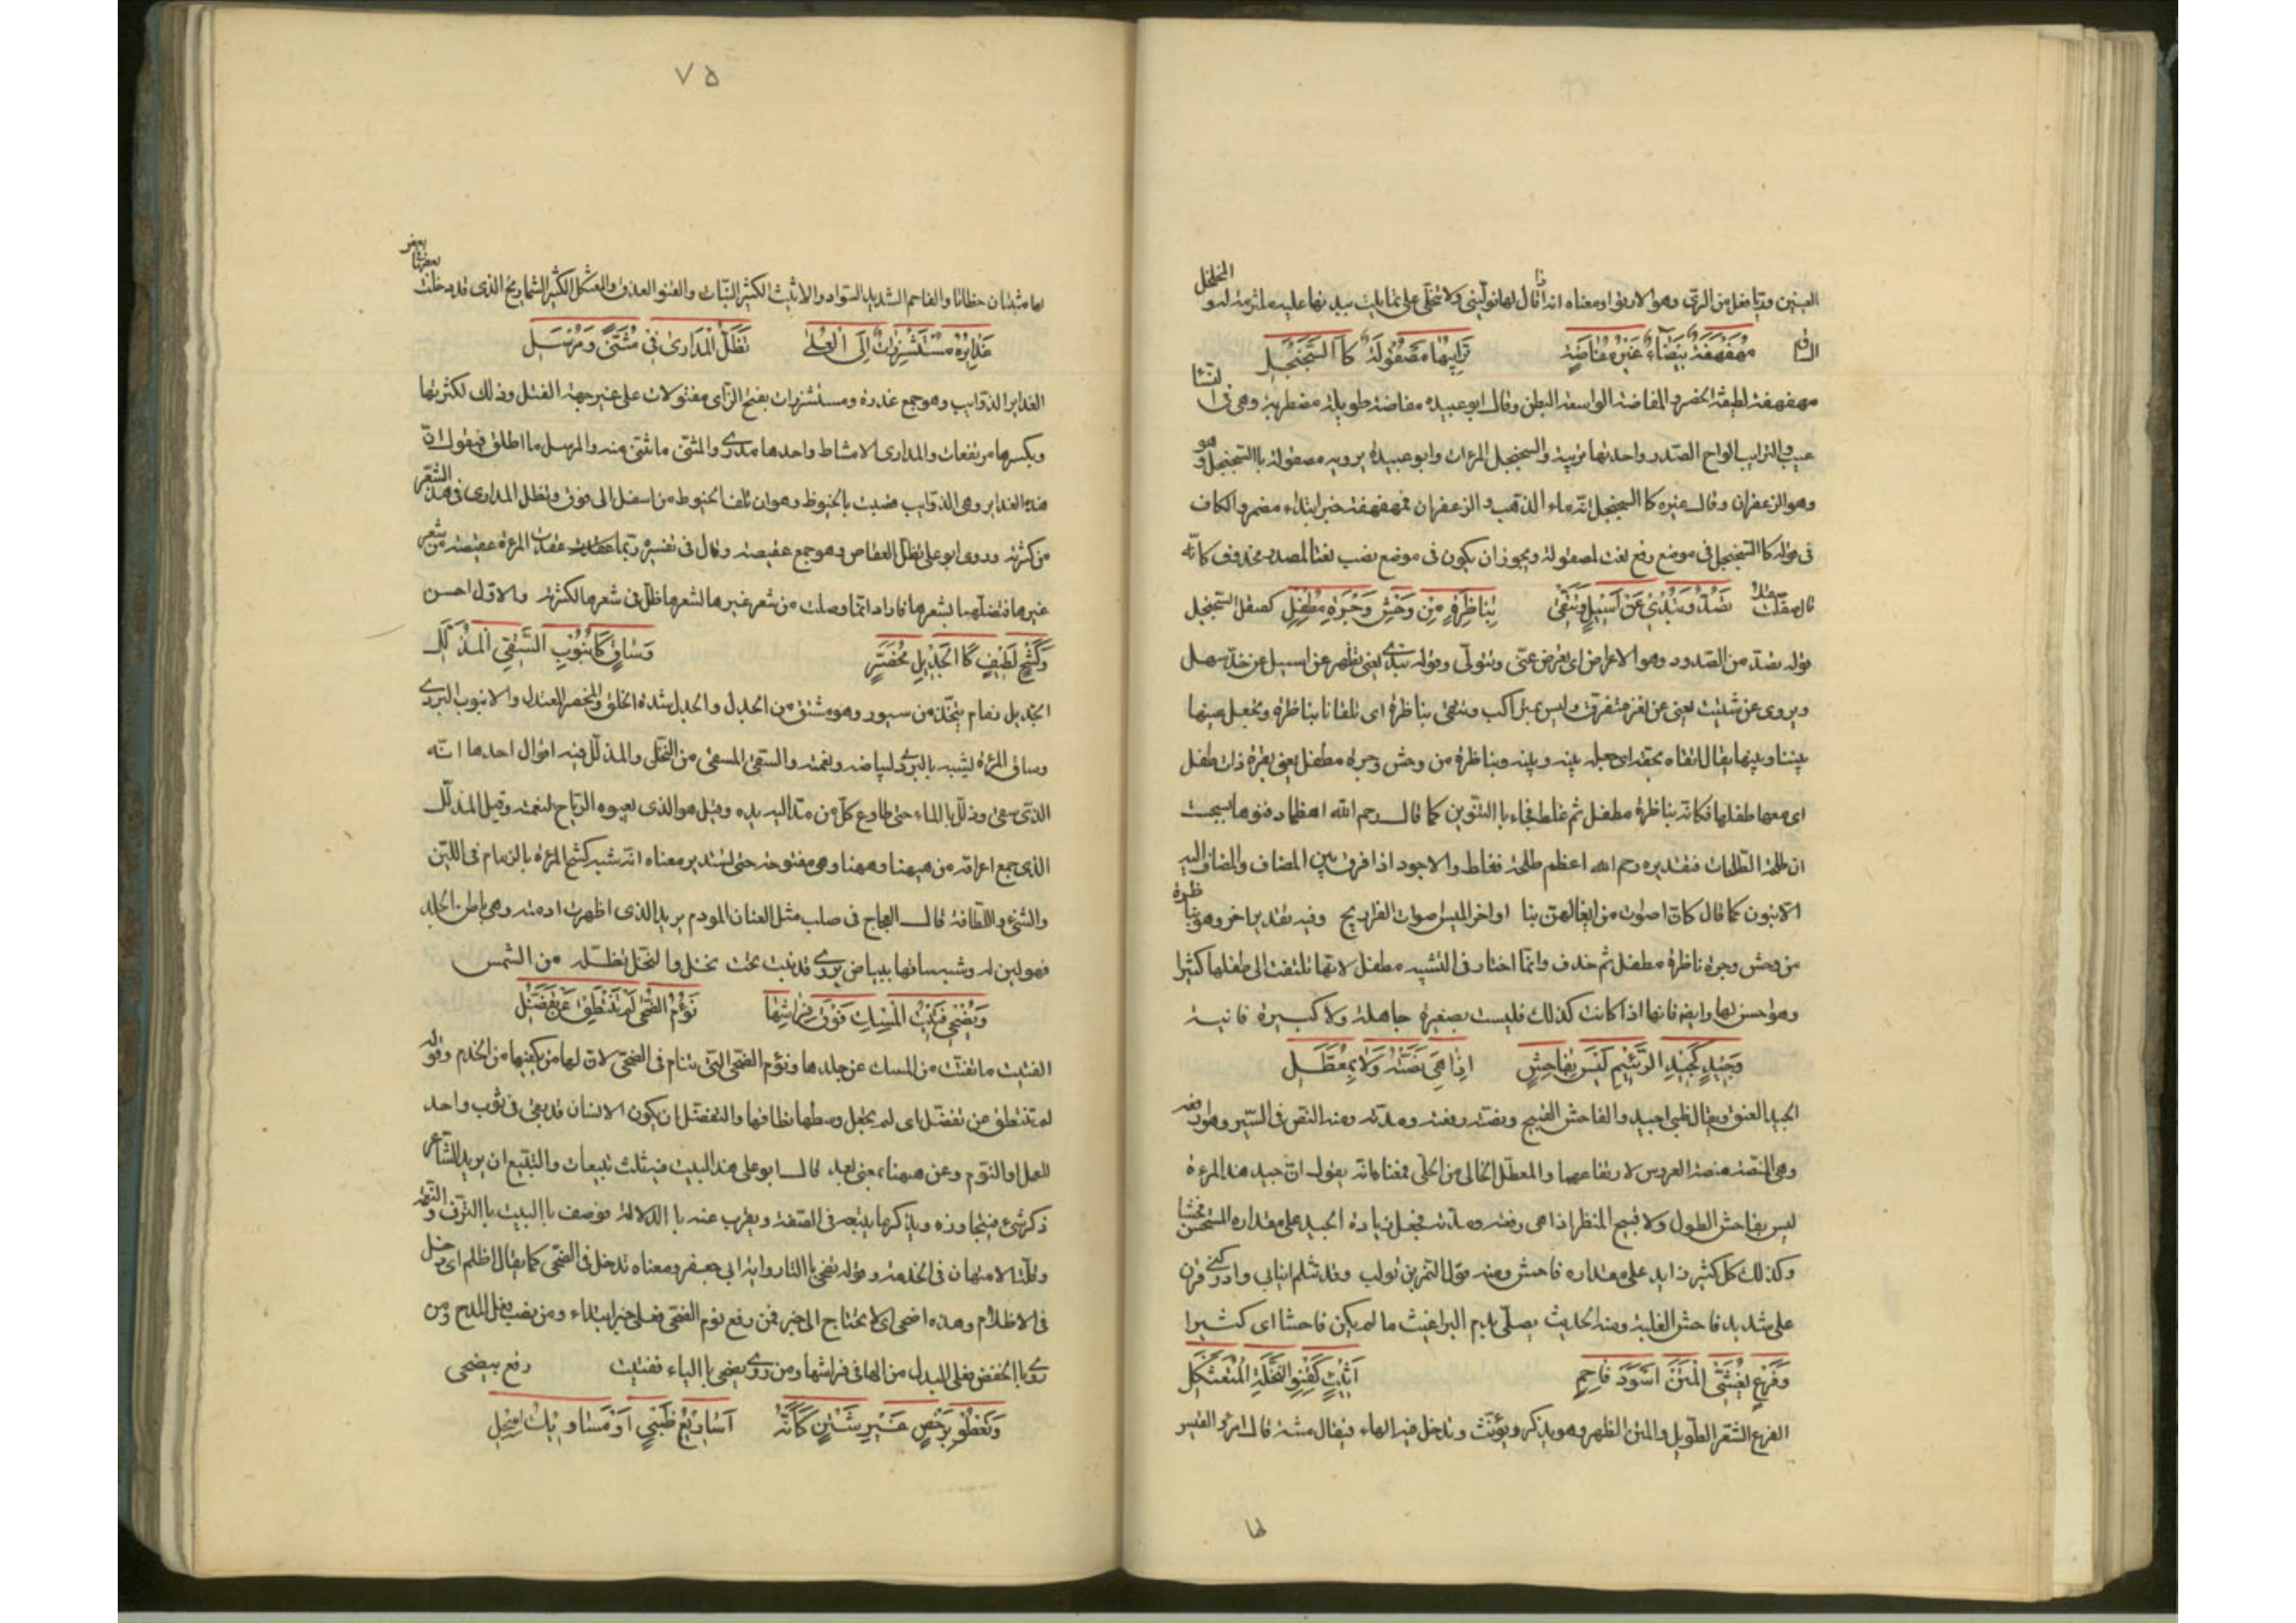 العينين وريا فعلى من الرى وهو الارتواء ومعناه انه اذا قال لها نولينى ولا تبخلى على تمايلت بيديها عليه ملتزمة له و المخلخل
الساق مهفهفة بيضاء غير مفاضة ترائبها مصقولة كا السجنجل
مهفهفة لطيفة الخصر والمفاضة الواسعة البطن وقال ابو عبيده مفاضة طويلة مضطربة وهى فى النساء
عيب والترايب الواح الصدر واحدتها تريبة والسجنجل المرءات وابو عبيدة يرويه مصقولة باالسجنجل و هو
وهو الزعفران وقال غيره كا السجنجل انه ماء الذهب و الزعفران فمهفهفة خبر ابتداء مضمر والكاف
فى قوله كا السجنجل فى موضع رفع نعت لمصقولة ويجوز ان يكون فى موضع نصب نعتا لمصدر محذوف كانه
قال صقلت صقلا تصد وتبدى عن اسيل وتتقى بناظرة من وحش وجرة مطفل كصقل السجنجل
قوله تصد من الصدود وهو الاعراض اى تعرض عنى وتتولى وقوله تبدى يعنى تظهر عن اسيل عن خد سهل
ويروى عن شتيت يعنى عن ثغر متفرق وليس بمتراكب وتتقى بناظرة اى تلقانا بناظرة وتجعل عينها
بيننا وبينها يقال اتقاه بحقه اى جعله بينه وبينه وبناظرة من وحش وجرة مطفل يعنى بقرة ذات طفل
اى معها طفلها فكانه بناظرة مطفل ثم غلط فجاء باالتنوين كما قال رحم الله اعظما دفنوها بسجست
ان طلحة الطلحات فتقديره رحم الله اعظم طلحة فغلط والاجود اذا فرق بين المضاف والمضاف اليه
الا بنون كما قال كان اصوات من ايغالهن بنا اواخر الميس صوات الفراريج وفيه تقدير اخر وهو بناظرة
من وحش وجرة ناظرة مطفل ثم حذف وانما اختار فى التشبيه مطفل لانها تلتفت الى طفلها كثيرا
وهو احسن لها وايضا فانها اذا كانت كذلك فليست بصغيرة جاهلة ولا كبيرة فانية
وجيد كجيد الرئيم ليس بفاحش اذا هى نصته ولا بمعطل
الجيد العنق ويقال ظبى اجيد والفاحش القبيح ونصته رفعته ومدته ومنه النص فى السير وهو ارفعه
وهى المنصة منصة العروس لارتفاعها والمعطل الخالى من الحلى فمعناه انه يقول ان جيد هذا المرءة
ليس بفاحش الطول ولا قبيح المنظر اذا هى رفعته ومدته فجعل زيادة الجيد على مقداره المستحسن فحشا
وكذلك كل كثير زايد على مقداره فاحش ومنه قول النمر بن تولب وقد ثلم انيابى وادركنى قرن
على شديد فاحش الغلبة ومنه الحديث يصلى بدم البراغيث ما لم يكن فاحشا اى كثيرا
وفرع يغشى المتن اسود فاحم اثيث كقنو النخلة المتعثكل
الفرع الشعر الطويل والمتن الظهر وهو يذكر ويؤنث وتدخل فيه الهاء فيقال متنة قال امرؤ القيس
لها
٧٥
لها متنتان خظاتا والفاحم الشديد السواد والاثيث الكثير النبات والقنو العذق والمتعثكل الكثير الشماريخ الذى قد دخلت بعضها بعض
غدايره مستشزرات الى العلى تظل المدارى فى مثنى ومرسل
الغداير الذوايب وهو جمع غدرة ومستشزرات بفتح الزاى مفتولات على غير جهة الفتل وذلك لكثرتها
وبكسرها مرتفعات والمدارى الامشاط واحدها مدرى والمثنى ما ثنى منه والمرسل ما اطلق فيقول ان
هذه الغداير وهى الذوايب نصبت بالخيوط وهو ان تلف الخيوط من اسفل الى فوق وتظل المدارى فى هذا الشعر
من كثرته وروى ابو على تظل العقاص وهو جمع عقيصة وقال فى تفسيره ربما عقدت المرءة عقيصة من شعر
غيرها فتصلها بشعرها فاراد انما وصلت من شعر غيرها لشعرها ظل فى شعرها لكثرته والاول احسن
وكشح لطيف كا الجديل مخصر وساق كانبوب السقى المذلل
الجديل زمام يتخذ من سيور وهو مشتق من الجدل والجدل شدة الخلق والمخصر المعتدل والانبوب البردى
وساق المرءة يشبه بالبردى لبياضه ونعمته والسقى المسقى من النخل والمذلل فيه اقوال احدها انه
الذى سقى وذلل باالماء حتى طاوع كل من مد اليه يده وقيل هو الذى تعيوه الرياح لنعمته وقيل المذلل
الذى جمع اعراقه من هيهنا وهيهنا وهى مفتوحة حتى لتستدير معناه انه شبه كشح المرءة بالزمام فى اللين
والتثنى واللطافة قال العجاج فى صلب مثل العنان المودم يريد الذى اظهرت ادمته وهى باطن الجلد
فهو لين له وشبه ساقها ببياض بردى قد نبت تحت نخل والنخل تظله من الشمس
وتضحى فتيت المسك فوق فراشها نؤم الضحى لم تنتطق عن تفضل
الفتيت ما تفتت من المسك عن جلدها ونؤم الضحى التى تنام فى الضحى لان لها من يكفيها من الخدم وقوله
لم تنتطق عن تفضل اى لم يجعل وسطها نطاقها والتفضل ان يكون الانسان قد بقى فى ثوب واحد
للعمل او النوم وعن هيهنا بمعنى بعد قال ابو على هذا البيت فيه ثلث تتبيعات والتتبيع ان يريد الشاعر
ذكر شئ فيتجاوزه ويذكر ما يتبعه فى الصفة ويقرب عنه باالدلالة فوصف باالبيت باالترف والنعمة
وقلة الامتهان فى الخدمة وقوله تضحى باالتاء رواية ابى جعفر ومعناه تدخل فى الضحى كما يقال اظلم اى دخل
فى الاظلام وهذه اضحى اى لا تحتاج الى خبر فمن رفع نؤم الضحى فعلى خبر ابتداء ومن نصب فعلى المدح ومن
روى باالخفض فعلى البدل من الها فى فراشها ومن روى يضحى باالياء ففتيت رفع بيضحى
وتعطو برخص غير شثن كانه اساريع ظبى او مساويك اسحل